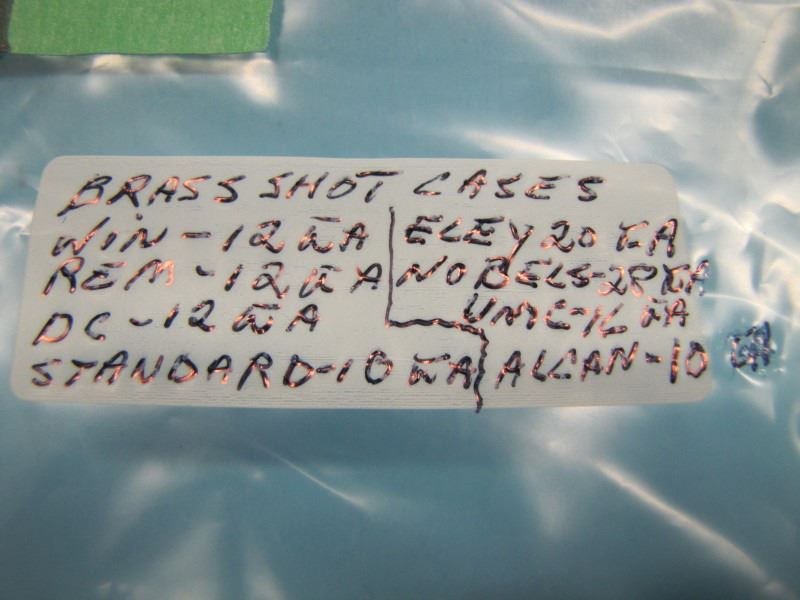 BRASS SHOT CASES
WIN-12 GA
REM-12 GA
DC-12 GA
STANDARD-10 GA
ELEY 20 GA
NOBELS-28 GA
UMC-16 GA
ALCAN-10 GA